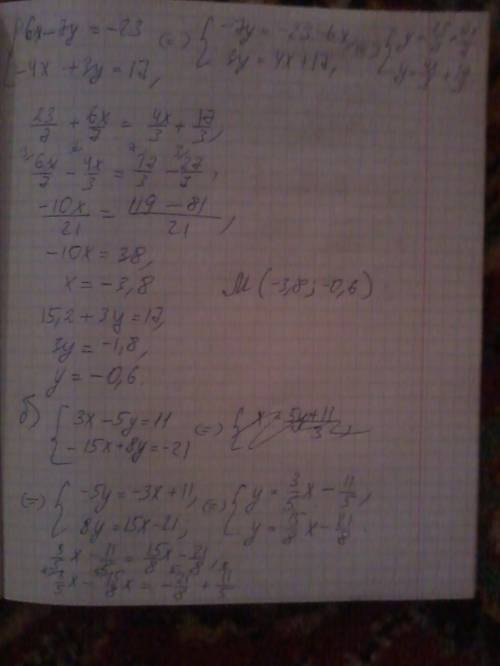 { 6x - 7y = -23 (=) { -7y = -23 - 6x (=) { y = 23/7 + 6x/7
{ -4x + 3y = 17, { 3y = 4x + 17, { y = 4x/3 + 17/3
23/7 + 6x/7 = 4x/3 + 17/3,
6x/7 - 4x/3 = 17/3 - 27/7,
-10x/21 = 119 - 81/21,
-10x = 38,
x = -3,8 M (-3,8; -0,6)
15,2 + 3y = 17,
3y = -1,8,
y = -0,6.
б) { 3x - 5y = 11 (=) { x = 5y + 11/3
{ -15x + 8y = -21
(=) { -5y = -3x + 11, (=) { y = 3/5 x - 11/5,
{ 8y = 15x - 21; { y = 15/8 x - 21/8.
3/5 x - 11/5 = 15x/8 - 21/8,
3/5 x - 15/8 x = -21/8 + 11/5